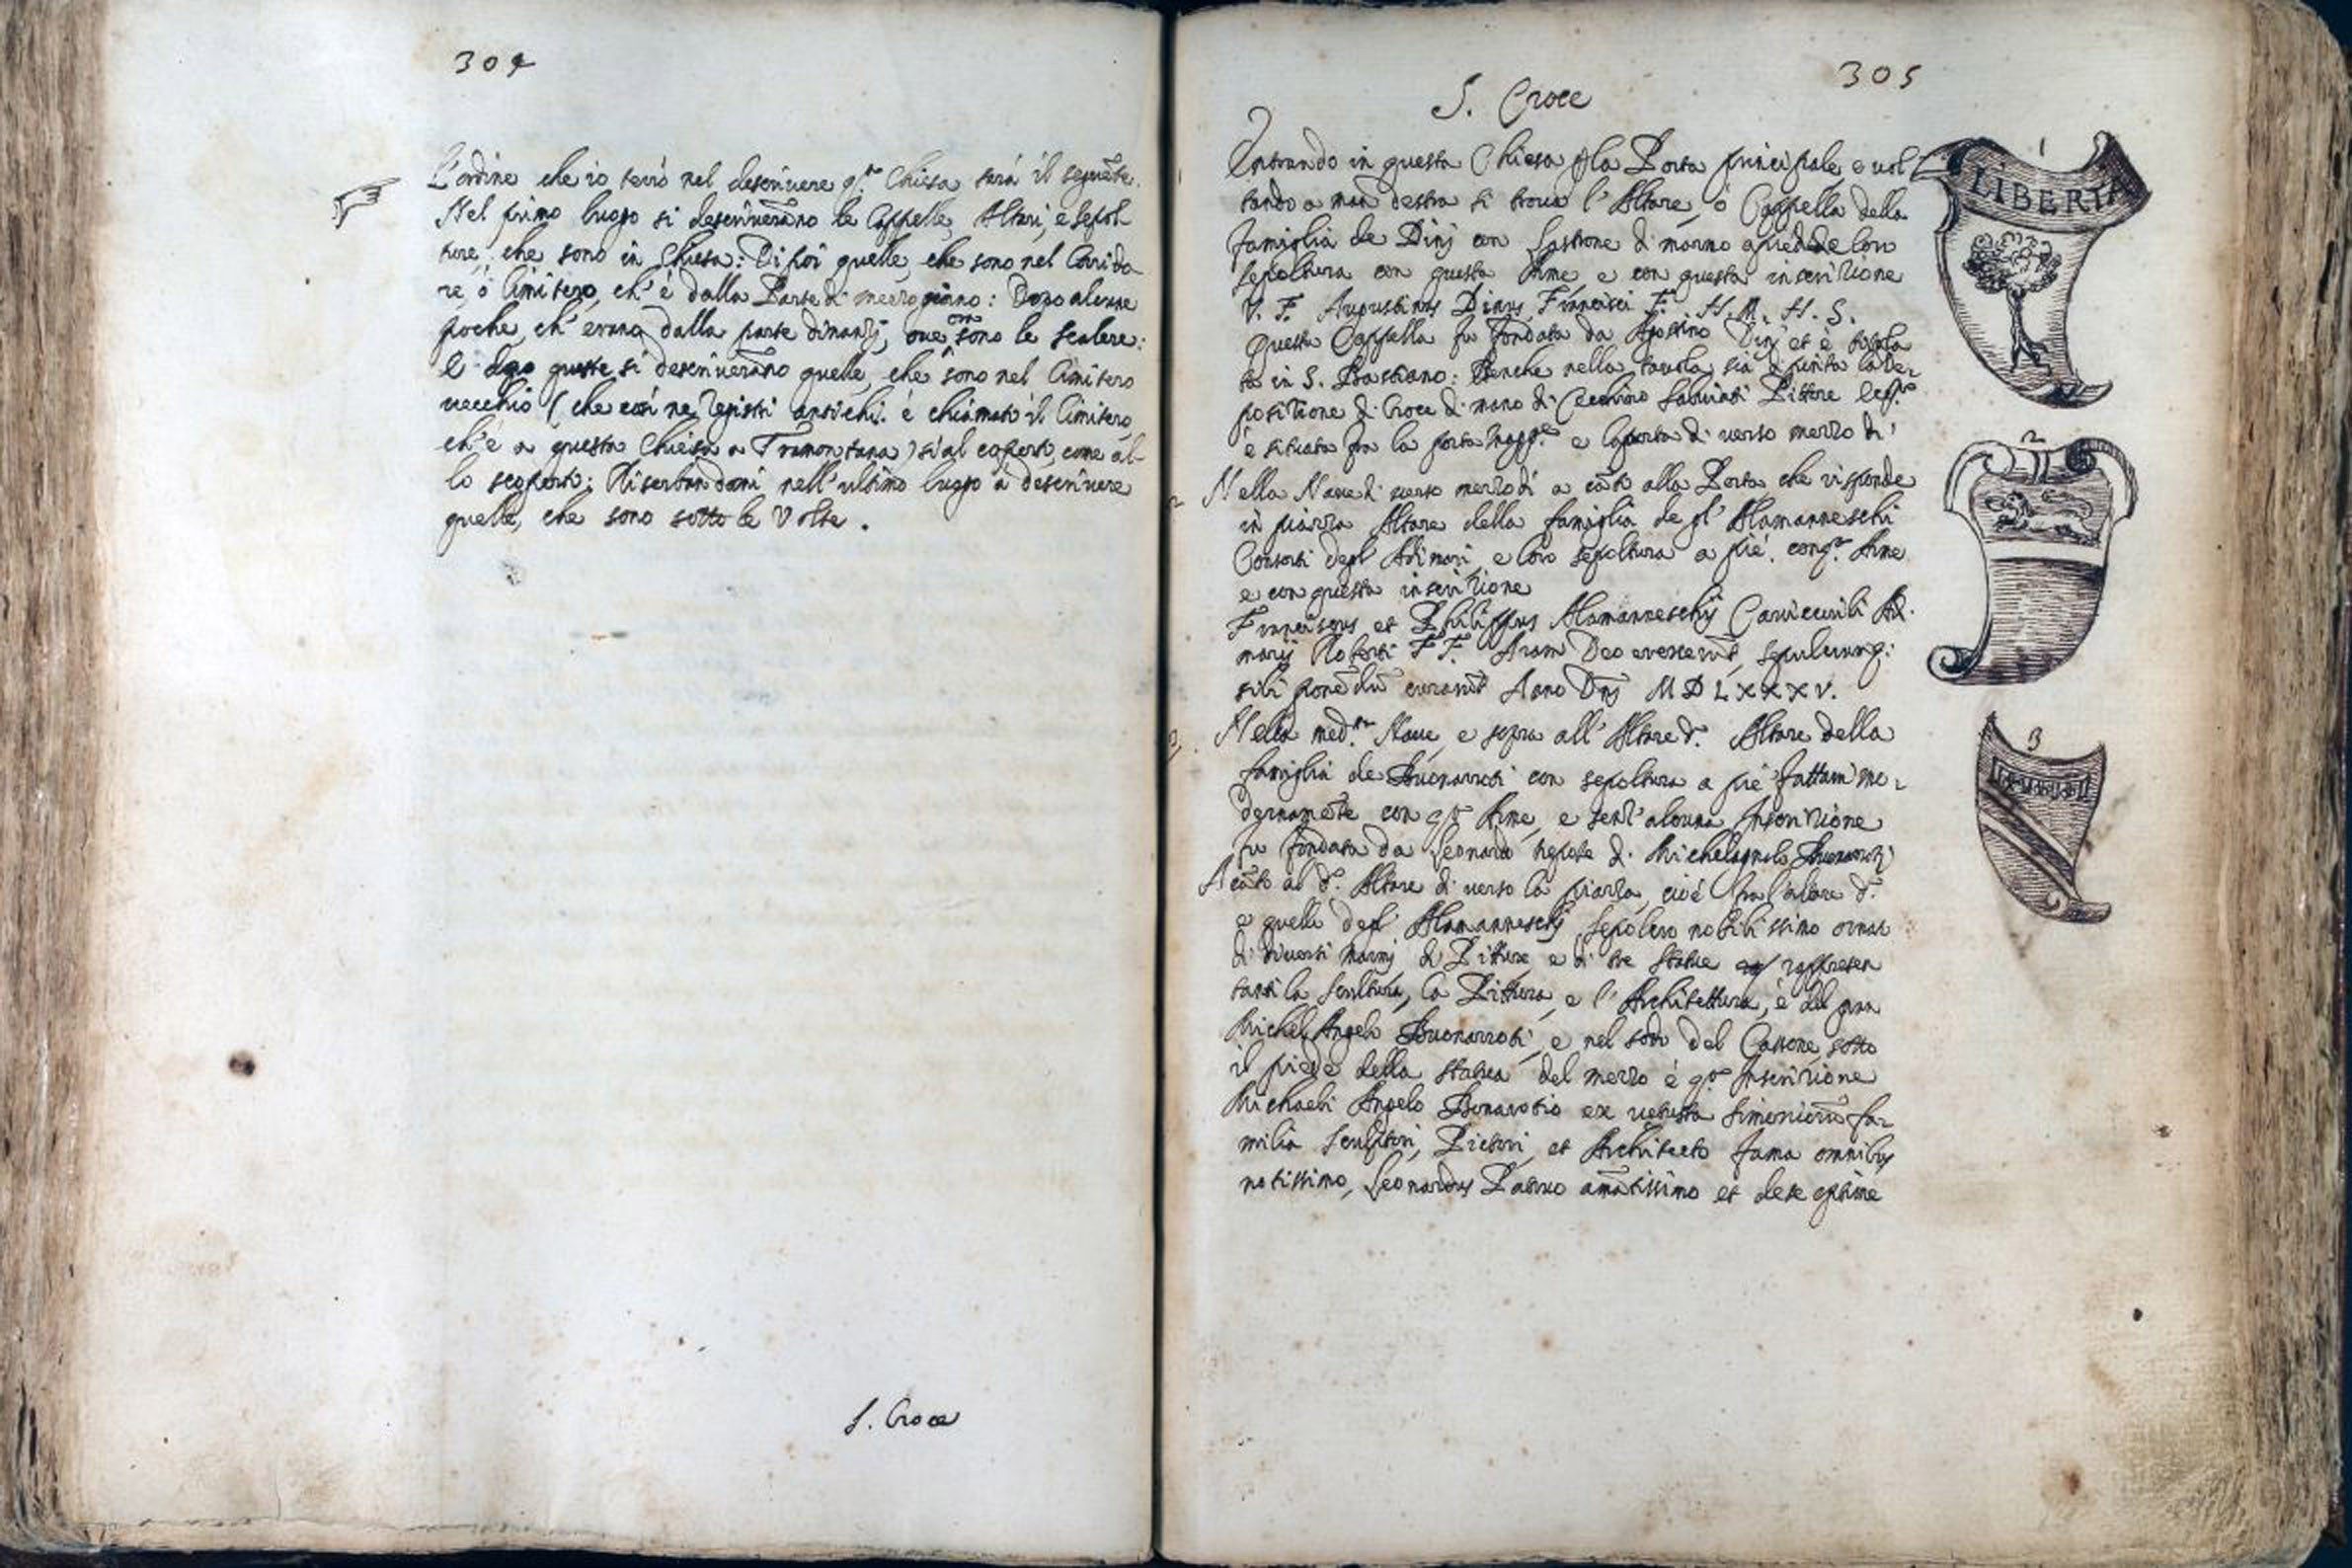 304
L'ordine che io terrò nel descriuere q.ta Chiesa serà il seguẽte.
Nel primo luogo si descriuerãno le Cappelle, Altari, e sepol
ture, che sono in Chiesa: Di poi quelle, che sono nel Corrido
re, ò Cimitero, ch' è dalla Parte di mezzo giorno: Dopo alcune
poche, ch' erano dalla parte dinanzj, oue or sono le scalere:
E dopo queste si descriuerãno quelle, che sono nel Cimitero
uecchio (che così ne Registri antichi è chiamato il Cimitero,
ch' è a questa Chiesa a Tramontana) sì al coperto, come al-
lo scoperto; Riserbandomi nell' ultimo luogo à descriuere
quelle, che sono sotto le Volte.
S. Croce
305
S. Croce
1
Entrando in questa Chiesa p la Porta principale, e uol
tando a man destra si troua l' Altare, ò Cappella della
famiglia de Dinj con lastrone di marmo a piedi de loro
sepoltura con questa Arme, e con questa inscrizione
V. F. Augustinus Dinus Francisci F. H. M. H. S.
Questa Cappella fu fondata da Agostino Dinj et è titola
ta in S. Bastiano: Benche nella tauola, sia dipinta la De-
posizione di Croce di mano di Cecchino Saluiati Pittore
è situata fra la porta magg.e e la porta di uerso mezzo dì
2
Nella Naue di uerso mezzodì a cãto alla Porta che risponde
in piazza Altare della famiglia de gl' Alamanneschi
Consorti degl' Adimari, e loro sepoltura a piè. con q.a Arme
e con questa inscrizione
Franciscus et Philippus Alamanneschij Cauicciuli Ad.
marij Roberti F F. Aram Deo erexerũt, sepulcrumq:
sibi ponẽdũ curarũt Anno Dnj M D L X X X V.
3.
Nella med.ma Naue, e sopra all' Altare d.o Altare della
famiglia de Buonarroti con sepoltura a piè fattaui mo-
dernamẽte con q.ta Arme, e senz' alcuna Inscrizione
fu fondata da Leonardo nepote di Michelagnolo Buonarrotj
A cãto al d.o Altare di uerso la piazza, cioè fra l'altare d.o
e quello degl' Alamanneschj Sepolcro nobilissimo ornat
di diuersi marmj di Pitture, e di tre Statue rappresen
tanti la scultura, la Pittura, e l' Architettura, è del gran
Michel Angelo Buonarroti, e nel sodo del Cassone, sotto
il piede della statua del mezzo è q.ta Inscrizione
Michaeli Angelo Bonarotio ex uetusta Simoniorũ fa-
milia Sculptori, Pictori, et Architecto fama omnibus
notissimo, Leonardus Patruo amãtissimo et de se optime
1
LIBERTA
2
3